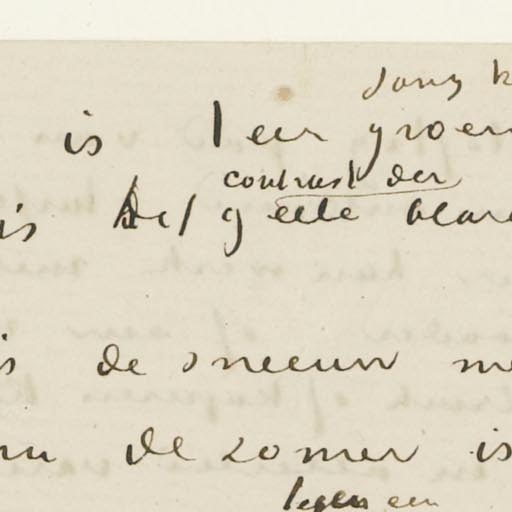 jong k
is teer groen
contrast der
is het geele blare
is de sneeuw me
nu de zomer is
tegen een